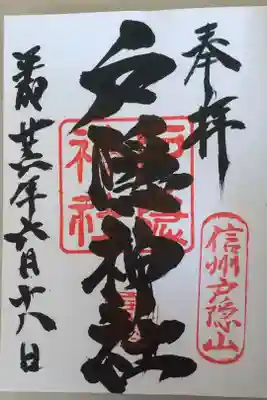 奉拝
信州戸隠山
戸隠神社
平成廿三年六月十八日